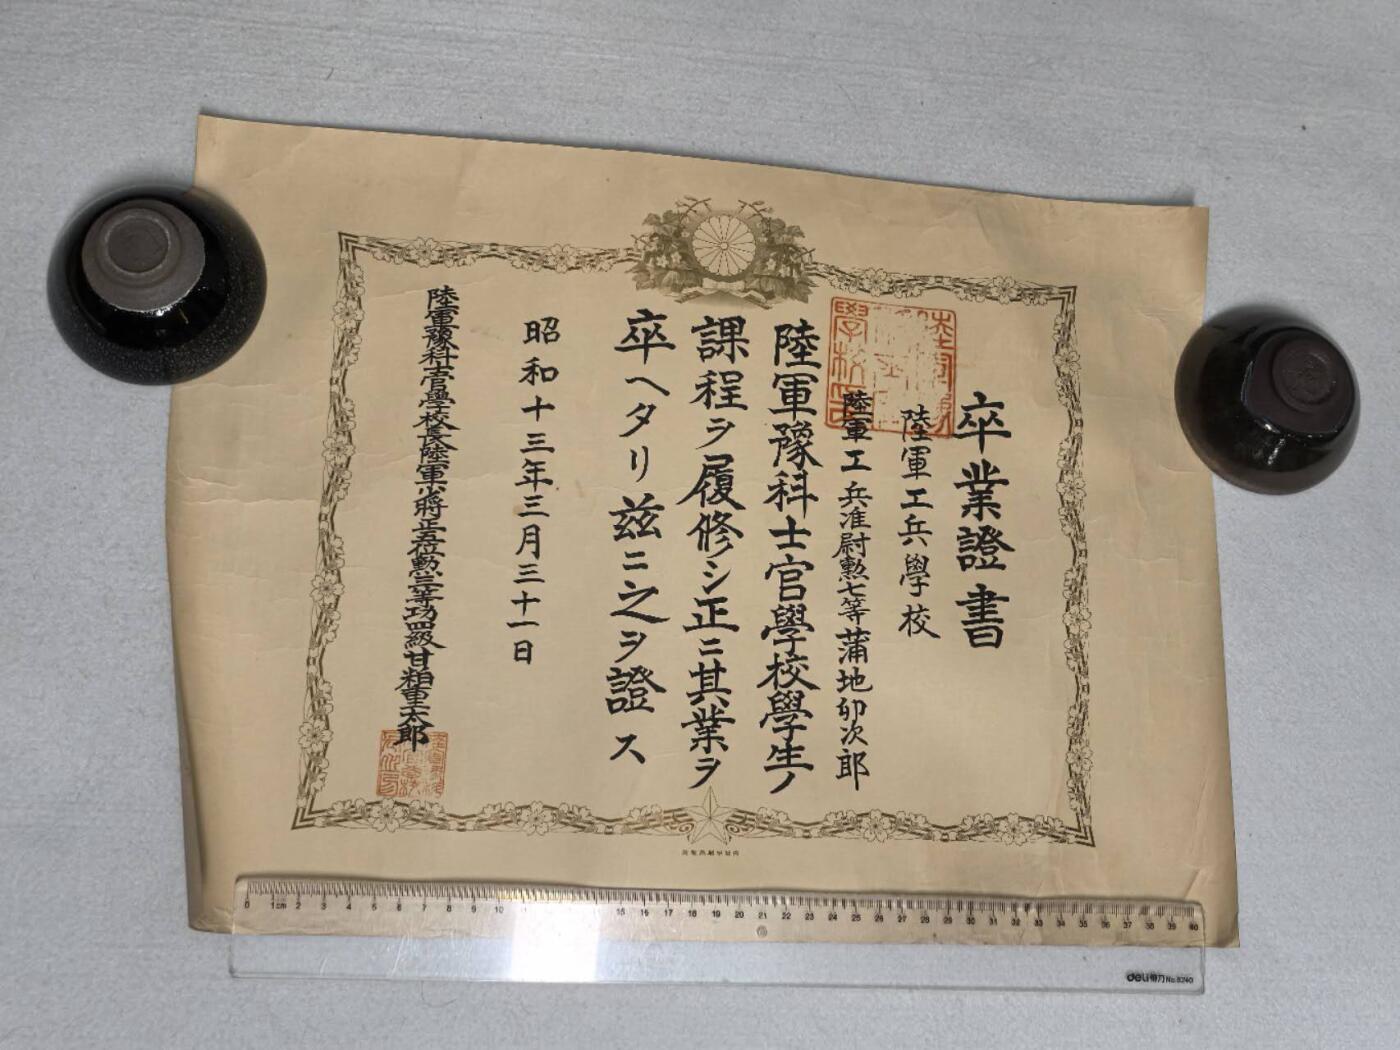 卒業證書
陸軍工兵學校
陸軍工兵准尉勲七等蒲地卯次郎
陸軍豫科士官學校學生ノ
課程ヲ履修シ正ニ其業ヲ
卒ヘタリ茲ニ之ヲ證ス
昭和十三年三月三十一日
陸軍豫科士官學校長陸軍少將正五位勲三等功四級甘粕重太郎
0 1cm 2 3 4 5 6 7 8 9 10 15 16 17 18 19 20 21 22 23 24 25 26 27 28 29 30 31 32 33 34 35 36 37 38 39 40
deli得力 No.6240